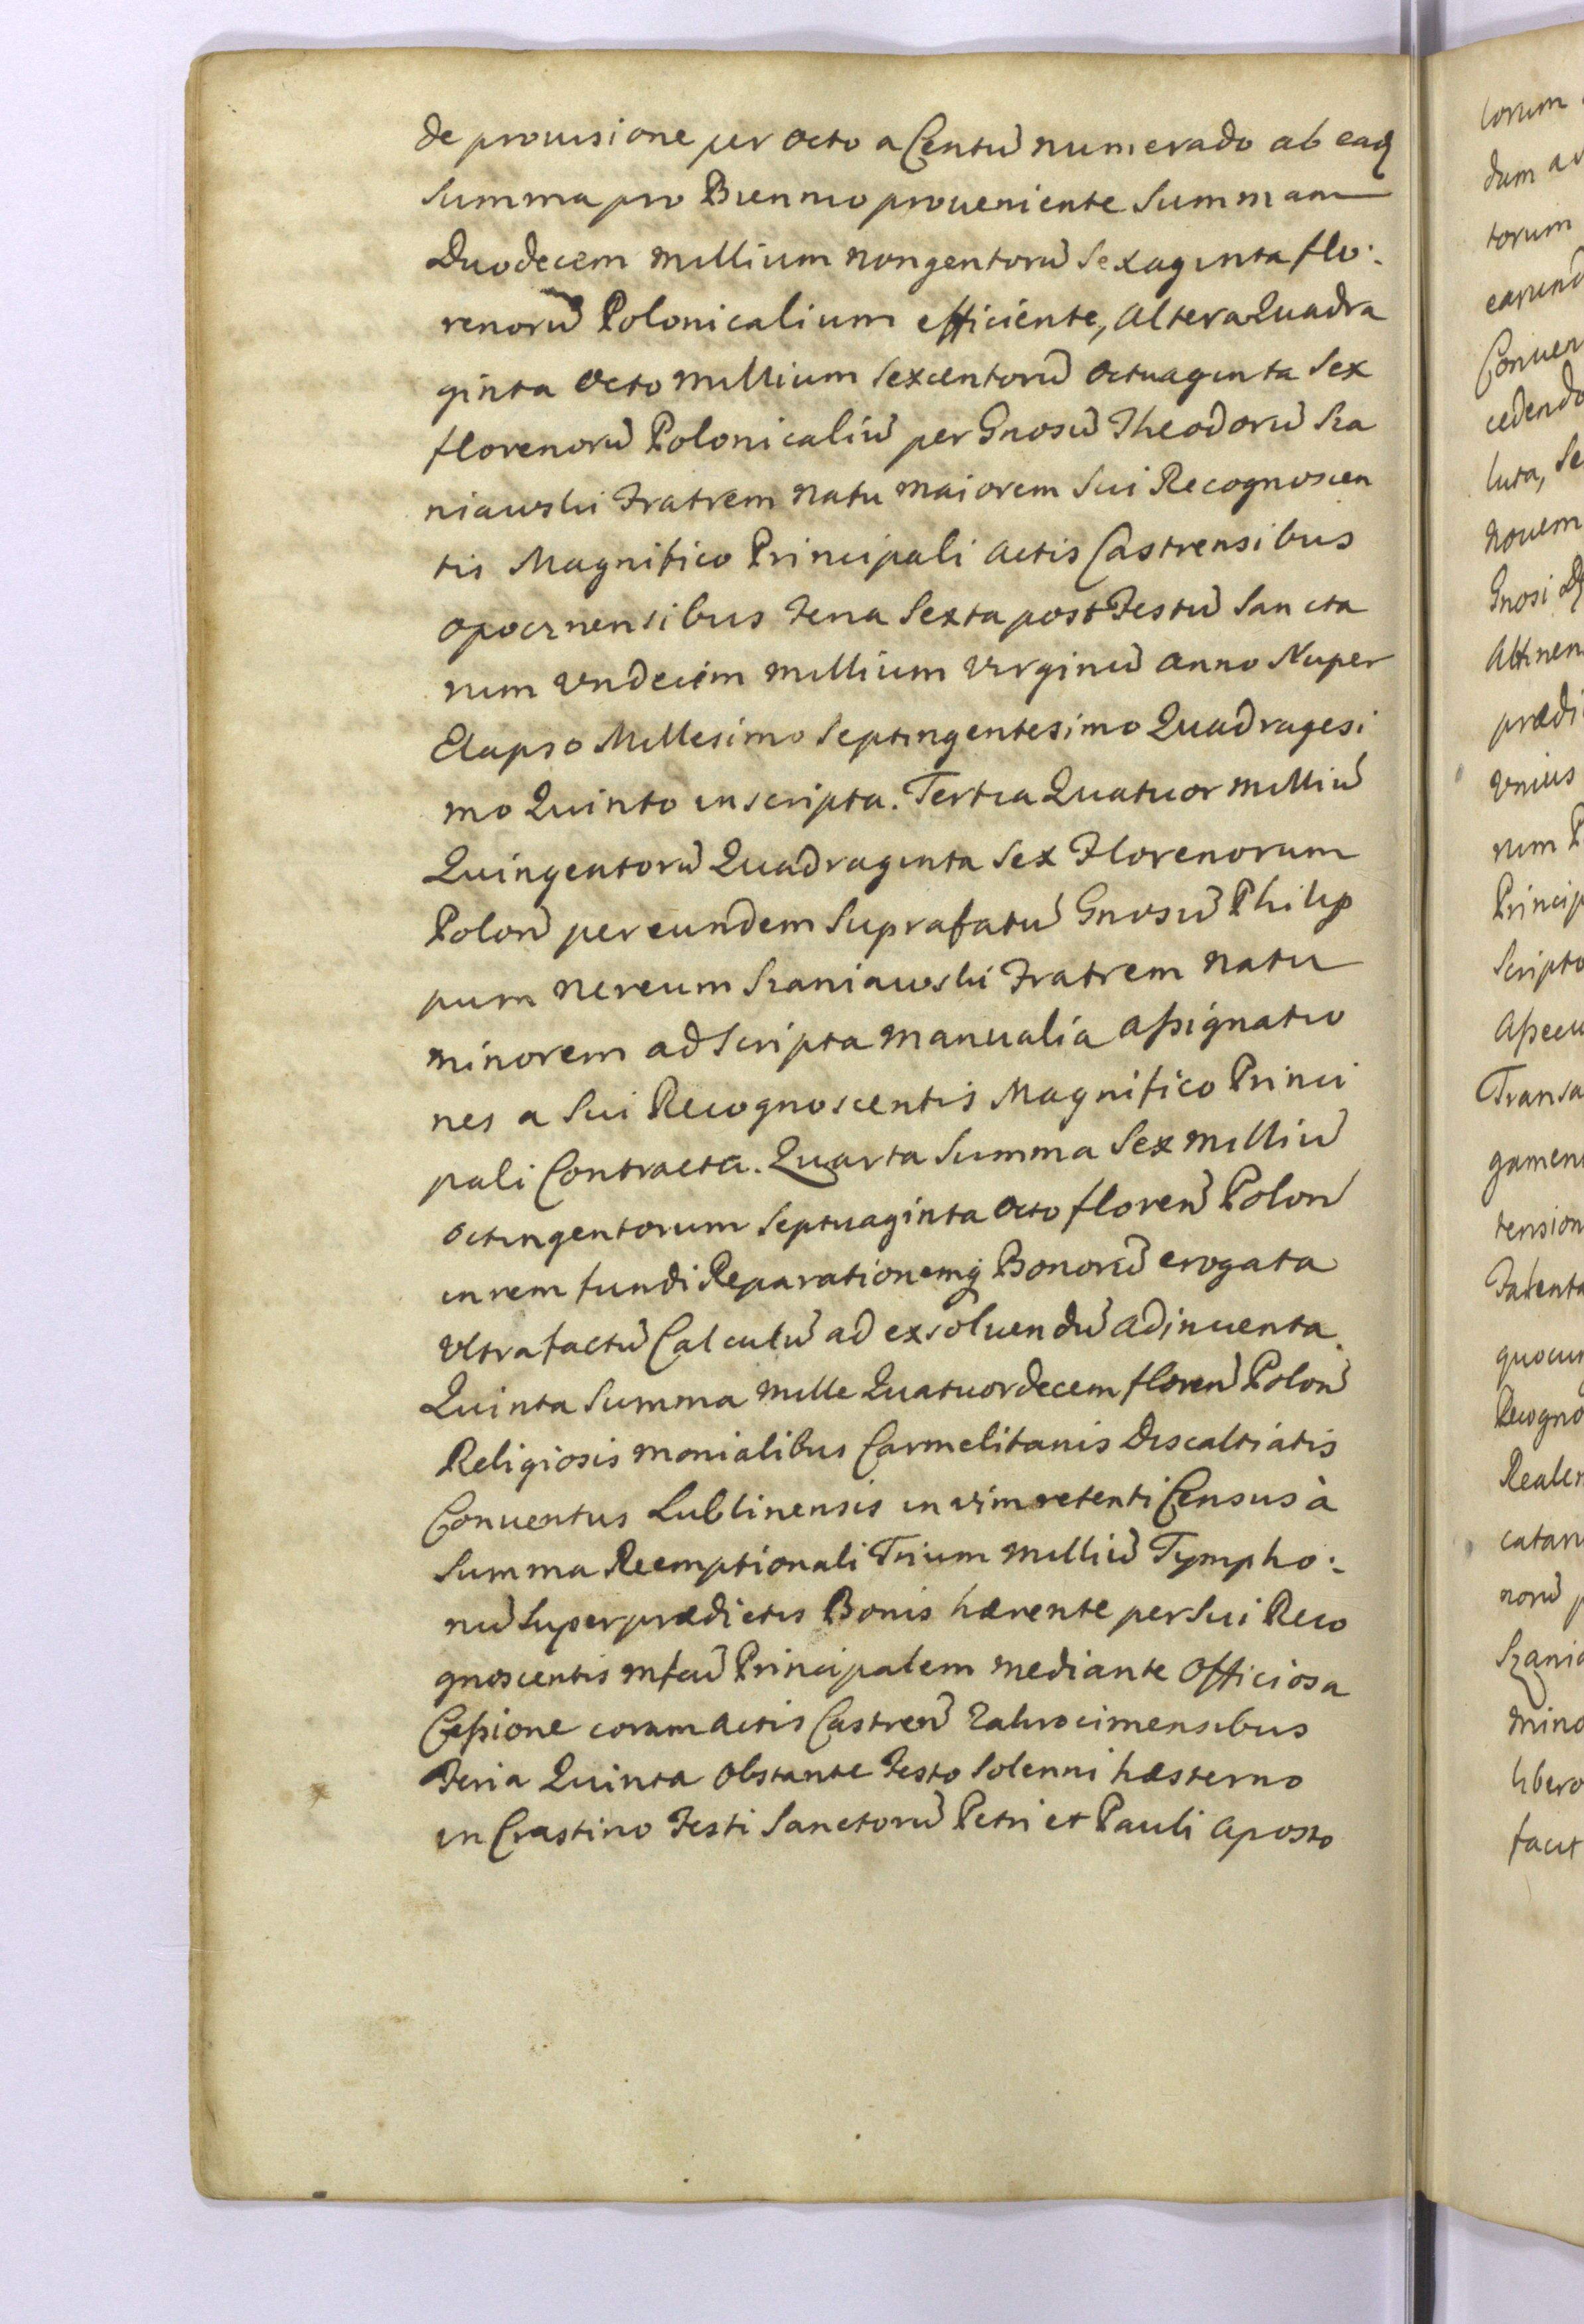 de prouisione per octo a Centũ numerãdo ab eadẽ
Summa pro Biennio proueniente Summam
Duodecem millium nongentorũ Sexaginta flo:
renorũ Polonicalium efficiente, altera Quadra
ginta octo millium Sexcentorũ octuaginta Sex
florenorũ Polonicaliũ per Gnosũ Theodorũ Sza
niawski Fratrem natu maiorem Sui Recognoscen
tis Magnifico Principali actis Castrensibus
opocznensibus Feria Sexta post Festũ Sancta
rum vndecim millium Virginũ anno Nuper
Elapso Millesimo Septingentesimo Quadragesi
mo Quinto inscripta. Tertia Quatuor milliũ
Quingentorũ Quadraginta Sex Florenorum
Poloñ per eundem Suprafatũ Gnosũ Philip
pum Nereum Szaniawski Fratrem natu
minorem ad Scripta manualia assignatio
nes a Sui Recognoscentis Magnifico Princi
pali Contracta. Quarta Summa Sex milliũ
octingentorum Septuaginta octo floreñ Poloñ
in rem fundi Reparationemq Bonorũ erogata
vltra factũ Calculũ ad exsoluendũ adinuenta.
Quinta Summa mille Quatuordecem floreñ Poloñ
Religiosis monialibus Carmelitanis Discaltiatis
Conuentus Lublinensis in vim retenti Census à
Summa Reemptionali Trium milliũ Tympho:
nũ Super prædictis Bonis hærente per Sui Reco
gnoscentis mfcũ Principalem mediante officiosa
Cessione coram actis Castreñ Zakrocimensibus
Feria Quinta obstante Festo Solenni hæsterno
in Crastino Festi Sanctorũ Petri et Pauli aposto
lorum
dum
torum
earund
Conuen
cedendo
luta, Se
nouem
Gnosi
Attinen
prædi
vnius
num P
Princip
Scripto
Assecu
Transa
gamen
tension
quocun
Recogno
Realem
catam
norũ p
Szania
mino
libero
facit